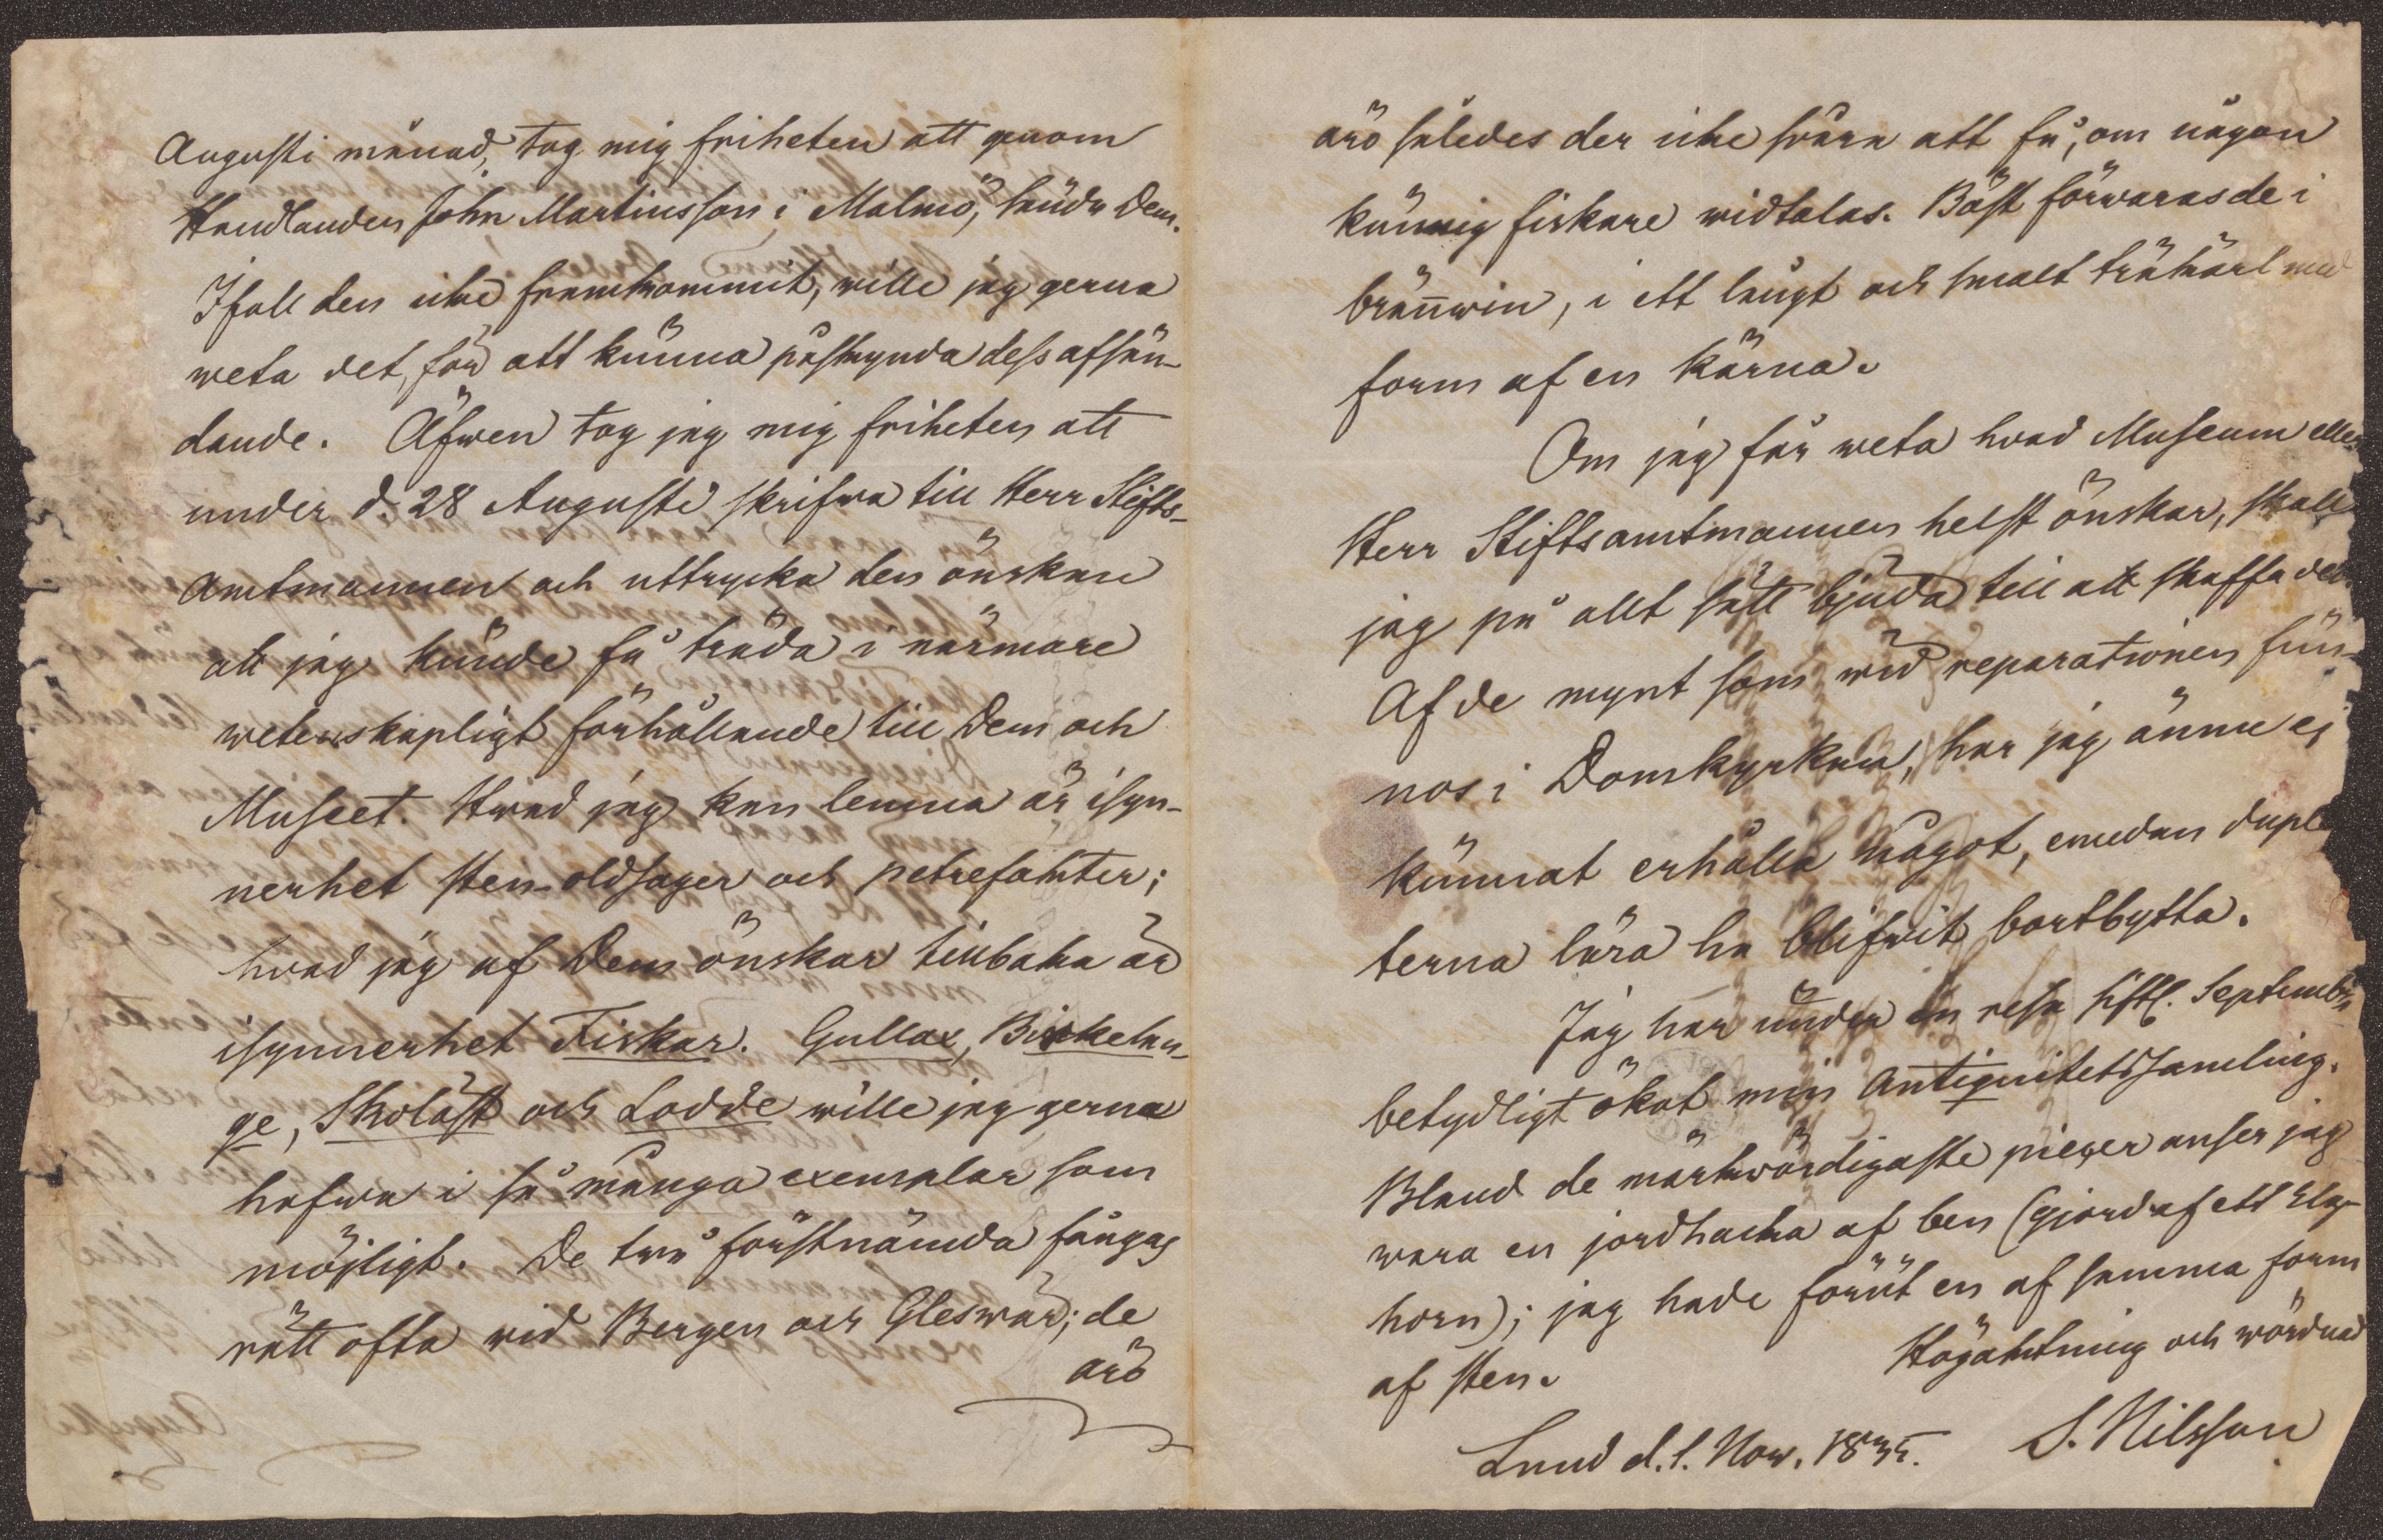 Augusti månad, tog mig friheten att genom
Handlanden John Martinsson i Malmö, sända Dem.
Ifall den icke framkommit, wille jag gerna
weta det, för att kunna påskynda dess afsän-
dande. Äfwen tog jag mig friheten att
under d. 28 Augusti skrifwa till Herr Stifts-
Amtmannen och uttrycka den önskan
att jag kunde få träda i närmare
wetenskapligt förhållande till Dem och
Museet. Hwad jag kan lemna är isyn-
nerhet sten-oldsager och petrefakter;
hwad jag af Dem önskar tillbaka är
isynnerhet Fiskar. Gullax, Birkelan-
ge, Skoläst och Lodde wille jag gerna
hafwa i så många exemplar som
möjligt. De twå förstnämda fångas
rätt ofta wid Bergen och Gleswär; de
äro
äro således der icke swåra att få, om någon
kunnig fiskare widtalas. Bäst förwaras de i
brännwin, i ett långt och smalt träkärl med
form af en kärna.
Om jag får weta hvad Museum eller
Herr Stiftsamtmannen helst önskar, skall
jag på allt sätt bjuda till att skaffa det.
Af de mynt som wid reparationen fun-
nos i Domkyrkan, har jag ännu ej
kunnat erhålla något, emedan duple
terna lära ha blifwit bortbytta.
Jag har under en resa sistl. September
betydligt ökat min Antiquitetssamling.
Bland de märkwärdigaste pieçer anser jag
wara en jordhacka af ben (gjord af ett Elg-
horn); jag hade förut en af samma form
af sten.
Högaktning och wördnad
Lund d. 1. Now. 1835. S. Nilsson